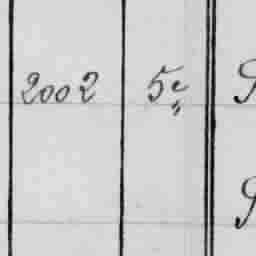 2002 5e